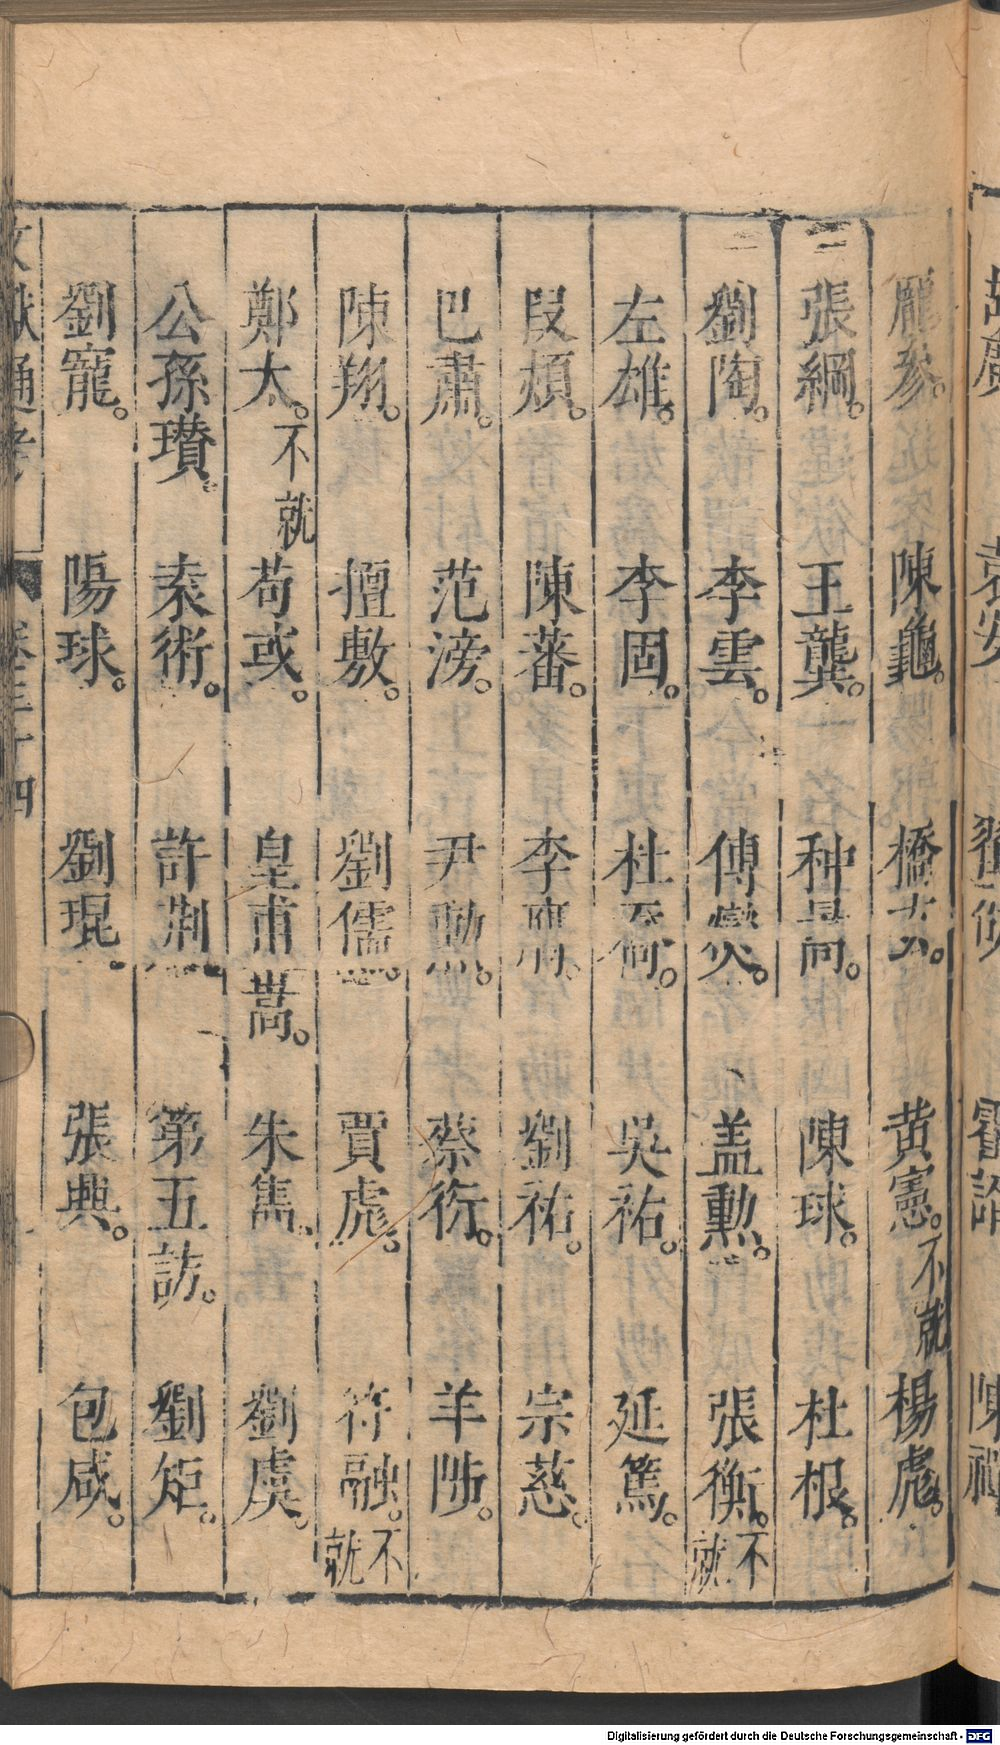 龐參。陳龜。橋玄。黄憲。不就楊彪。
張綱。王龔。种暠。陳球。杜根。
劉陶。李雲。傅燮。盖勲。張衡。不就
左雄。李固。杜喬。吳祐。延篤。
段熲。陳蕃。李膺。劉祐。宗慈。
巴肅。范滂。尹勲。蔡衍。羊陟。
陳翔。擅敷。劉儒。賈彪。符融。不就
鄭太。不就荀彧。皇甫嵩。朱雋。劉虞。
公孫瓚。袁術。許荆第五訪。劉矩。
劉寵。陽球。劉琨。張興。包咸。
文獻通考 卷三十四
Digitalisierung gefördert durch die Deutsche Forschungsgemeinschaft - DFG